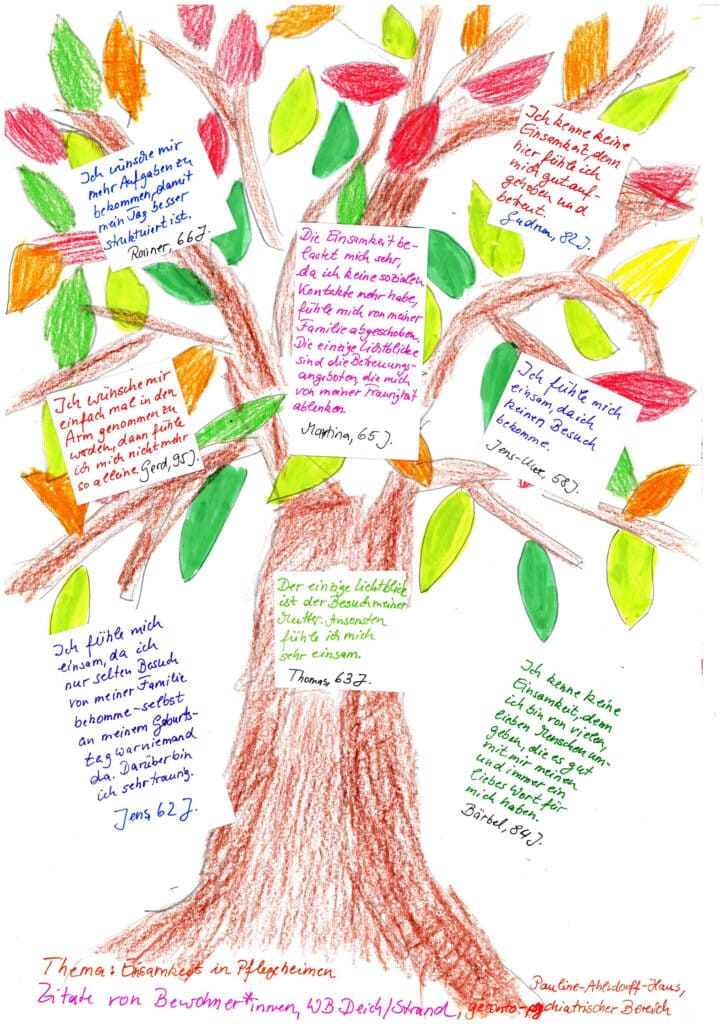 Ich wünsche mir
mehr Aufgaben zu
bekommen, damit
mein Tag besser
struktuiert ist.
Rainer, 66 J.
Ich kenne keine
Einsamkeit, denn
hier fühle ich
mich gut auf-
gehoben und
betreut.
Gudrun, 82 J.
Die Einsamkeit be-
lastet mich sehr,
da ich keine sozialen
Kontakte mehr habe,
fühle mich von meiner
Familie abgeschoben.
Die einzige Lichtblicke
sind die Betreuungs-
angeboten, die mich
von meiner Traurigkeit
ablenken.
Martina, 65 J.
Ich wünsche mir
einfach mal in den
Arm genommen zu
werden, dann fühle
ich mich nicht mehr
so alleine. Gerd, 95 J.
Ich fühle mich
einsam, da ich
keinen Besuch
bekomme.
Jens-Uwe, 58 J.
Der einzige Lichtblick
ist der Besuch meiner
Mutter. Ansonsten
fühle ich mich
sehr einsam.
Thomas, 63 J.
Ich fühle mich
einsam, da ich
nur selten Besuch
von meiner Familie
bekomme - selbst
an meinem Geburts-
tag war niemand
da. Darüber bin
ich sehr traurig.
Jens, 62 J.
Ich kenne keine
Einsamkeit, denn
ich bin von vielen
lieben Menschen um-
geben, die es gut
mit mir meinen
und immer ein
liebes Wort für
mich haben.
Bärbel, 84 J.
Thema: Einsamkeit in Pflegeheimen
Pauline-Ahlsdorff-Haus,
Zitate von Bewohner*innen, WB Deich/Strand, geronto-psychiatrischer Bereich